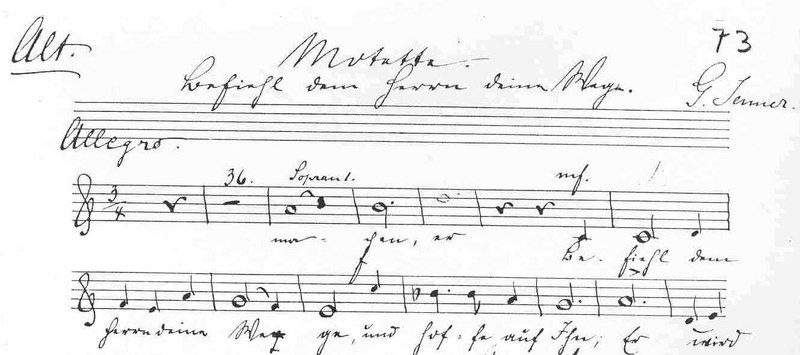 Alt.
73
Motette.
Befiehl dem Herrn deine Wege.
G. Jenner.
Allegro.
3/4
36.
Sopran 1.
mf.
ma - chen, er Be - fiehl dem
f
Herrn deine Wege, und hof - fe auf Ihn; Er wird